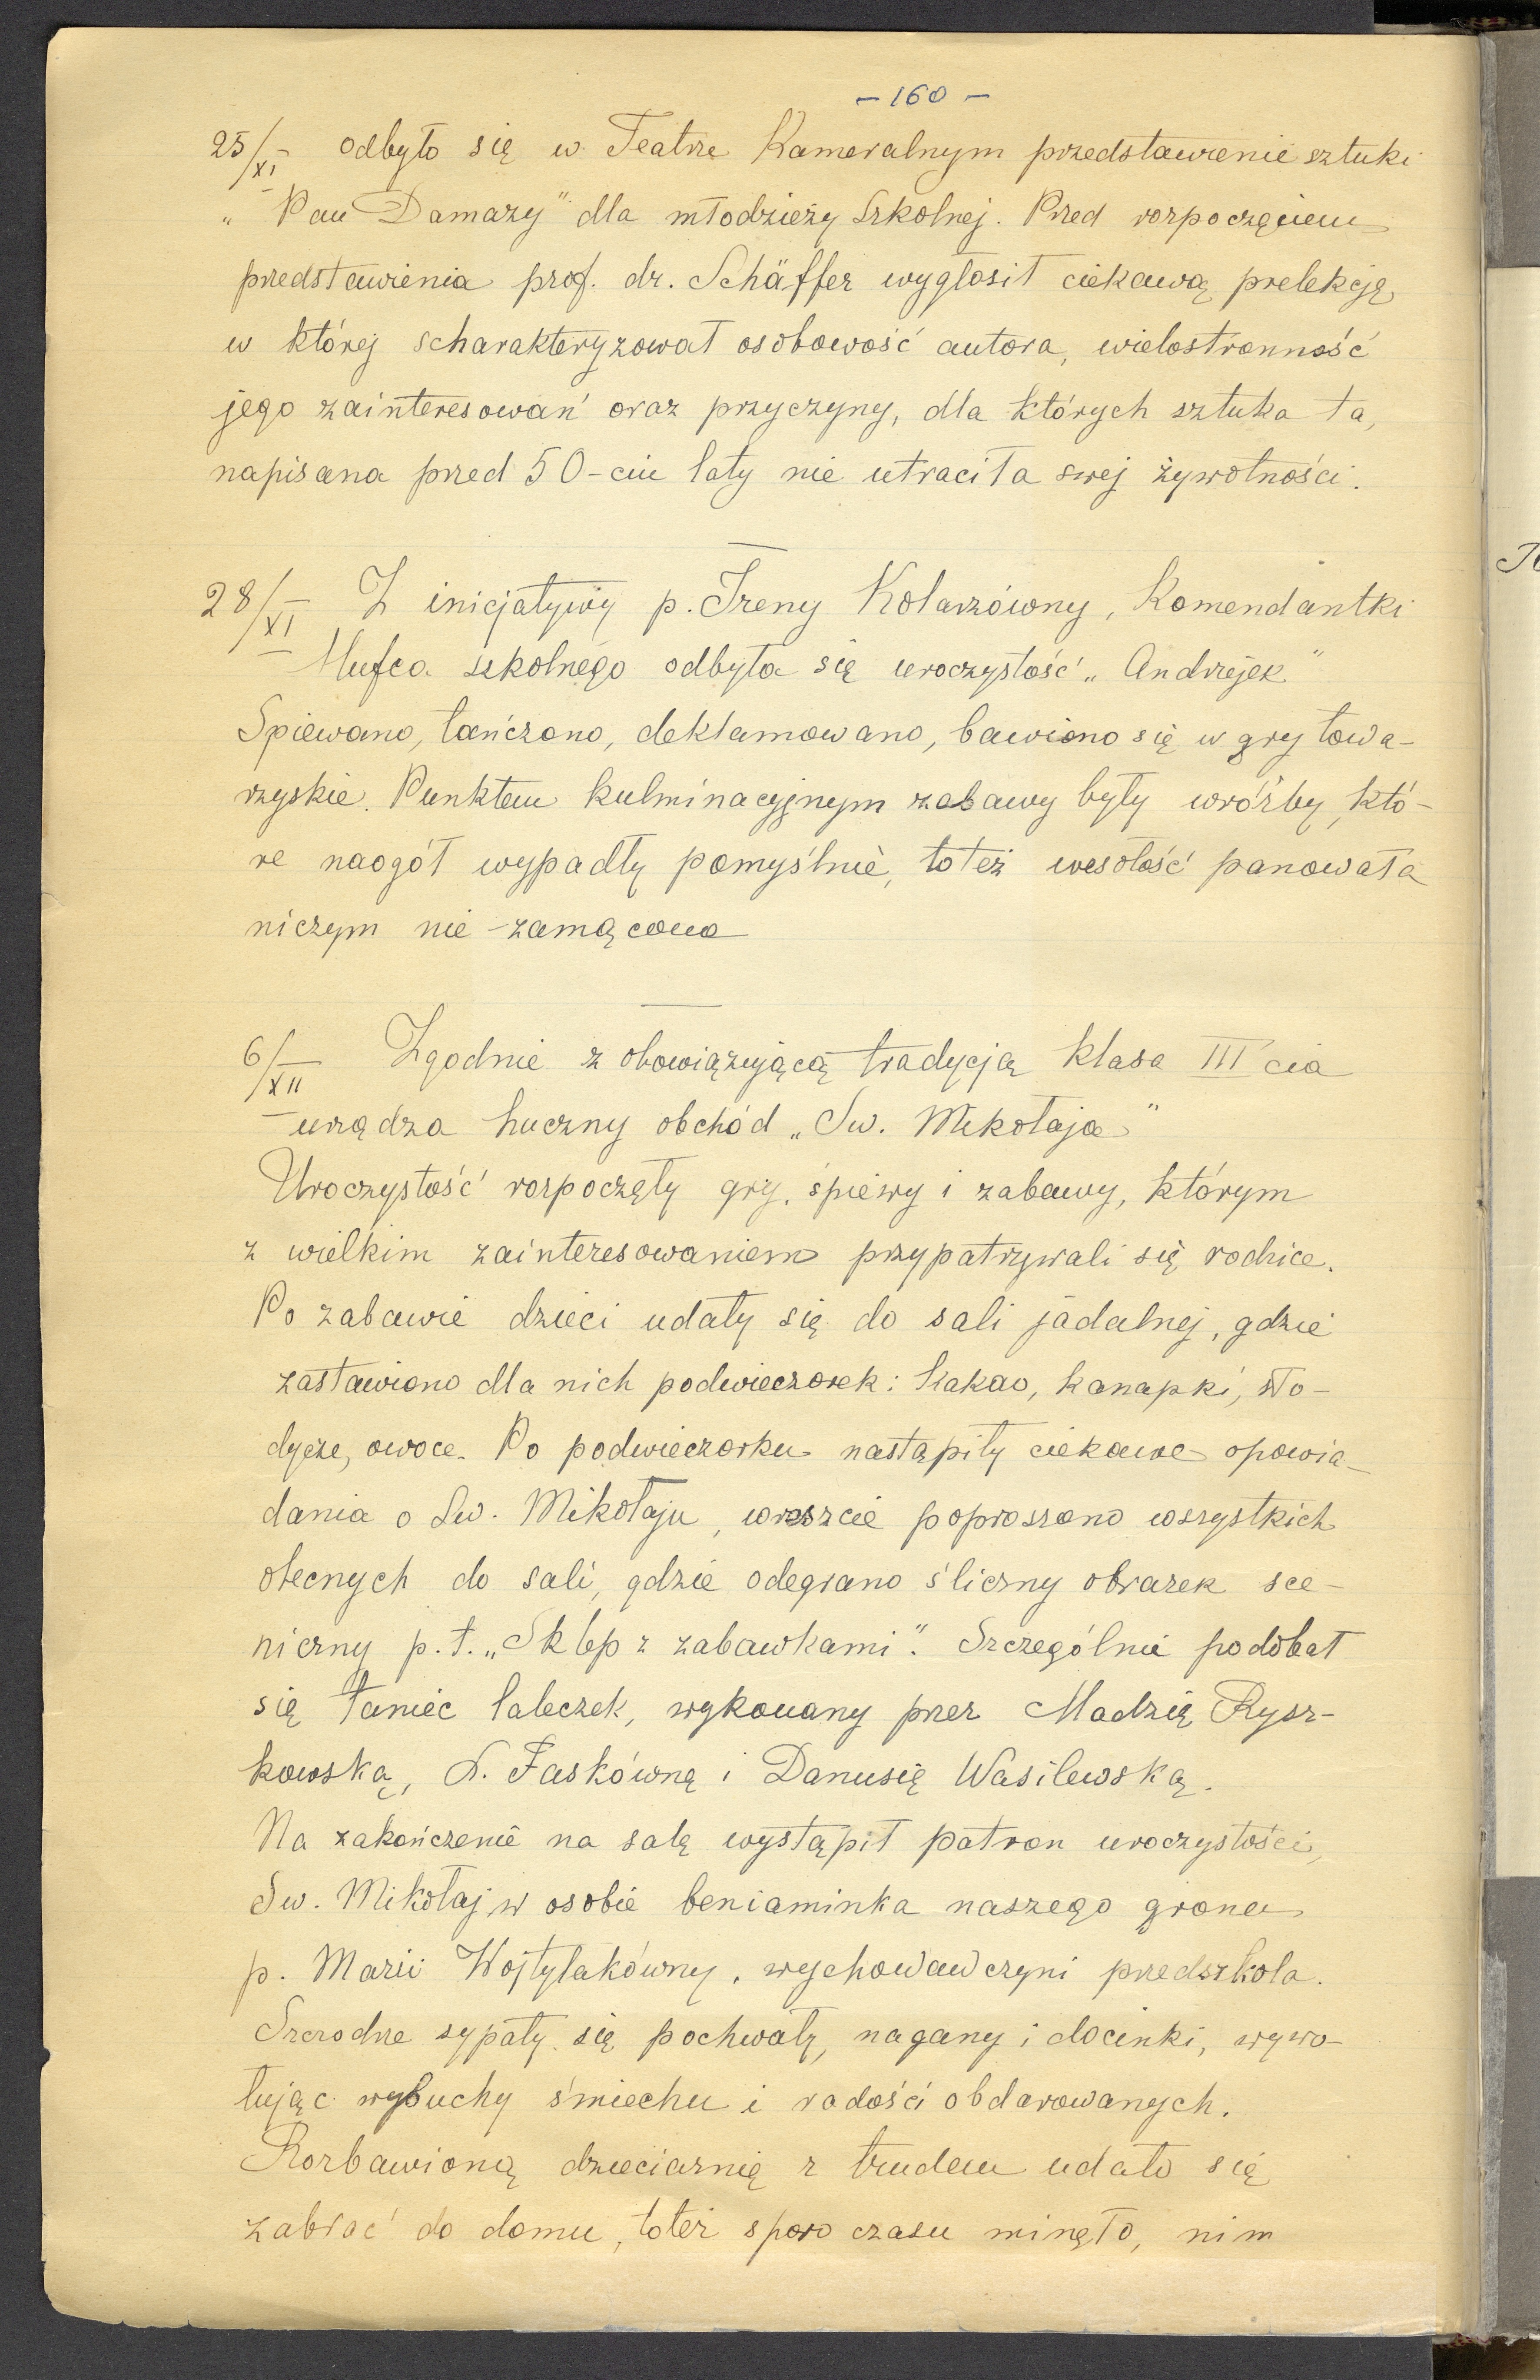 - 160 -
25/XI odbyło się w Teatrze Kameralnym przedstawienie sztuki
„Pan Damazy" dla młodzieży Szkolnej. Przed rozpoczęciem
przedstawienia prof. dr. Schäffer wygłosił ciekawą prelekcję,
w której scharakteryzował osobowość autora, wielostronność
jego zainteresowań oraz przyczyny, dla których sztuka ta,
napisana przed 50-ciu laty nie utraciła swej żywotności.
28/XI Z inicjatywy p. Ireny Kolarzówny, Komendantki
Hufca szkolnego odbyła się uroczystość „Andrzejek"
Spiewano, tańczono, deklamowano, bawiono się w gry towa-
rzyskie. Punktem kulminacyjnym zabawy były wróżby, któ-
re naogół wypadły pomyślnie, toteż wesołość panowała
niczym nie zamącona
6/XII Zgodnie z obowiązującą tradycją klasa III cia
urządza huczny obchód „Sw. Mikołaja"
Uroczystość rozpoczęły gry, śpiewy i zabawy, którym
z wielkim zainteresowaniem przypatrywali się rodzice.
Po zabawie dzieci udały się do sali jadalnej, gdzie
zastawiono dla nich podwieczorek: kakao, kanapki, sło-
dycze, owoce. Po podwieczorku nastąpiły ciekawe opowia-
dania o Sw. Mikołaju, wreszcie poproszono wszystkich
obecnych do sali, gdzie odegrano śliczny obrazek sce-
niczny p.t. „Sklep z zabawkami". Szczególnie podobał
się taniec laleczek, wykonany przez Madzię Rysz-
kowską, D. Faskówną i Danusię Wasilewską.
Na zakończenie na salę wystąpił patron uroczystości,
Sw. Mikołaj w osobie beniaminka naszego grona
p. Marii Wojtylakówny, wychowawczyni przedszkola.
Szczodrze sypały się pochwały, nagany i docinki, wywo-
łując wybuchy śmiechu i radości obdarowanych.
Rozbawioną dzieciarnię z trudem udało się
zabrać do domu, toteż sporo czasu minęło, nim